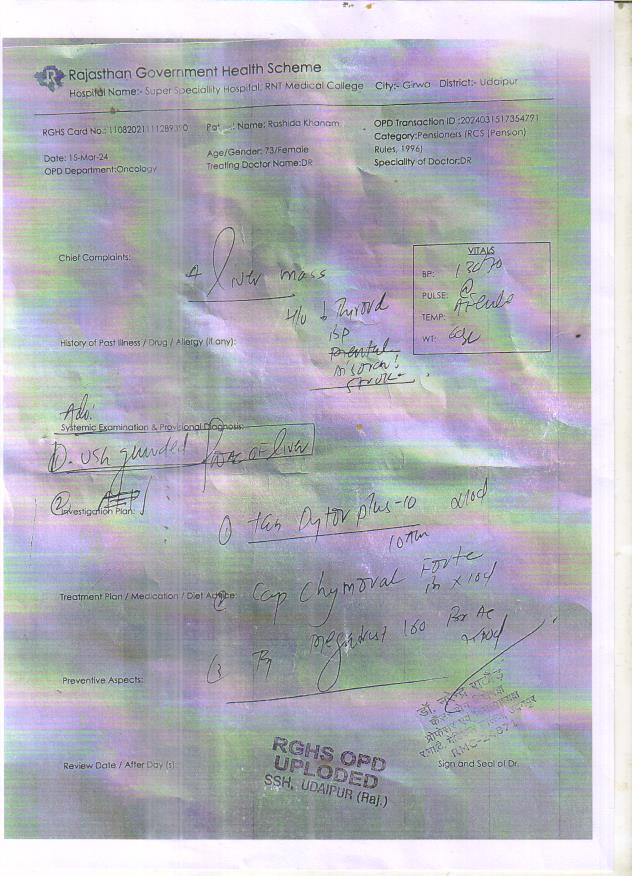 Rajasthan Government Health Scheme
Hospital Name:- Super Speciality Hospital, RNT Medical College City:- Girwa District:- Udaipur
RGHS Card No.: 11082021111289390 Name: Rashida Khanam OPD Transaction ID :2024031517354791
Category:Pensioners (RCS (Pension) Rules, 1996)
Date: 15-Mar-24 Age/Gender: 73/Female
OPD Department:Oncology Treating Doctor Name:DR Speciality of Doctor:DR
Chief Complaints:
Liver mass
VITALS
BP: 130/70
PULSE:
TEMP: Afebrile
WT:
H/o Thyroid
History of Past Illness / Drug / Allergy (if any):
Stroke
Adv:
Systemic Examination & Provisional Diagnosis:
1. USG guided FNAC of liver
2
Investigation Plan:
1 Tab Dytor plus-10 x10d
10 Am
Treatment Plan / Medication / Diet Advice:
2 Cap Chymoral Forte
x 10d
3 Megadust 160
Preventive Aspects:
डॉ.
Review Date / After Day (s):
RGHS OPD
UPLODED
SSH, UDAIPUR (Raj.)
Sign and Seal of Dr.